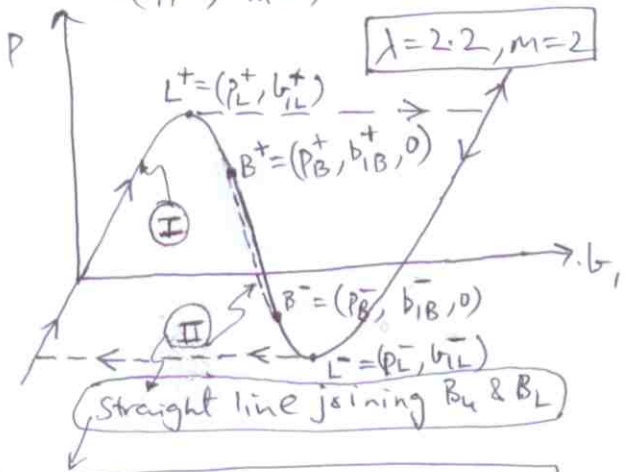 P
λ=2.2, m=2
L⁺=(p_L⁺, b_1L⁺)
B⁺=(p_B⁺, b_1B⁺, 0)
I
b₁
B⁻=(p_B⁻, b_1B⁻, 0)
II
L⁻=(p_L⁻, b_1L⁻)
Straight line joining B_u & B_L